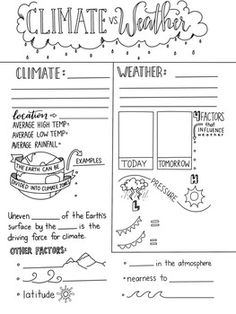 CLIMATE vs Weather
CLIMATE:
WEATHER:
location
AVERAGE HIGH TEMP=
AVERAGE LOW TEMP=
AVERAGE RAINFALL=
EXAMPLES
THE EARTH CAN BE
DIVIDED INTO CLIMATE ZONES
Uneven ______ of the Earth's
surface by the _____ is the
driving force for climate.
OTHER FACTORS:
• latitude
TODAY
TOMORROW
4 FACTORS
THAT
INFLUENCE
WEATHER
PRESSURE
L
H
• ______ in the atmosphere
• nearness to ______